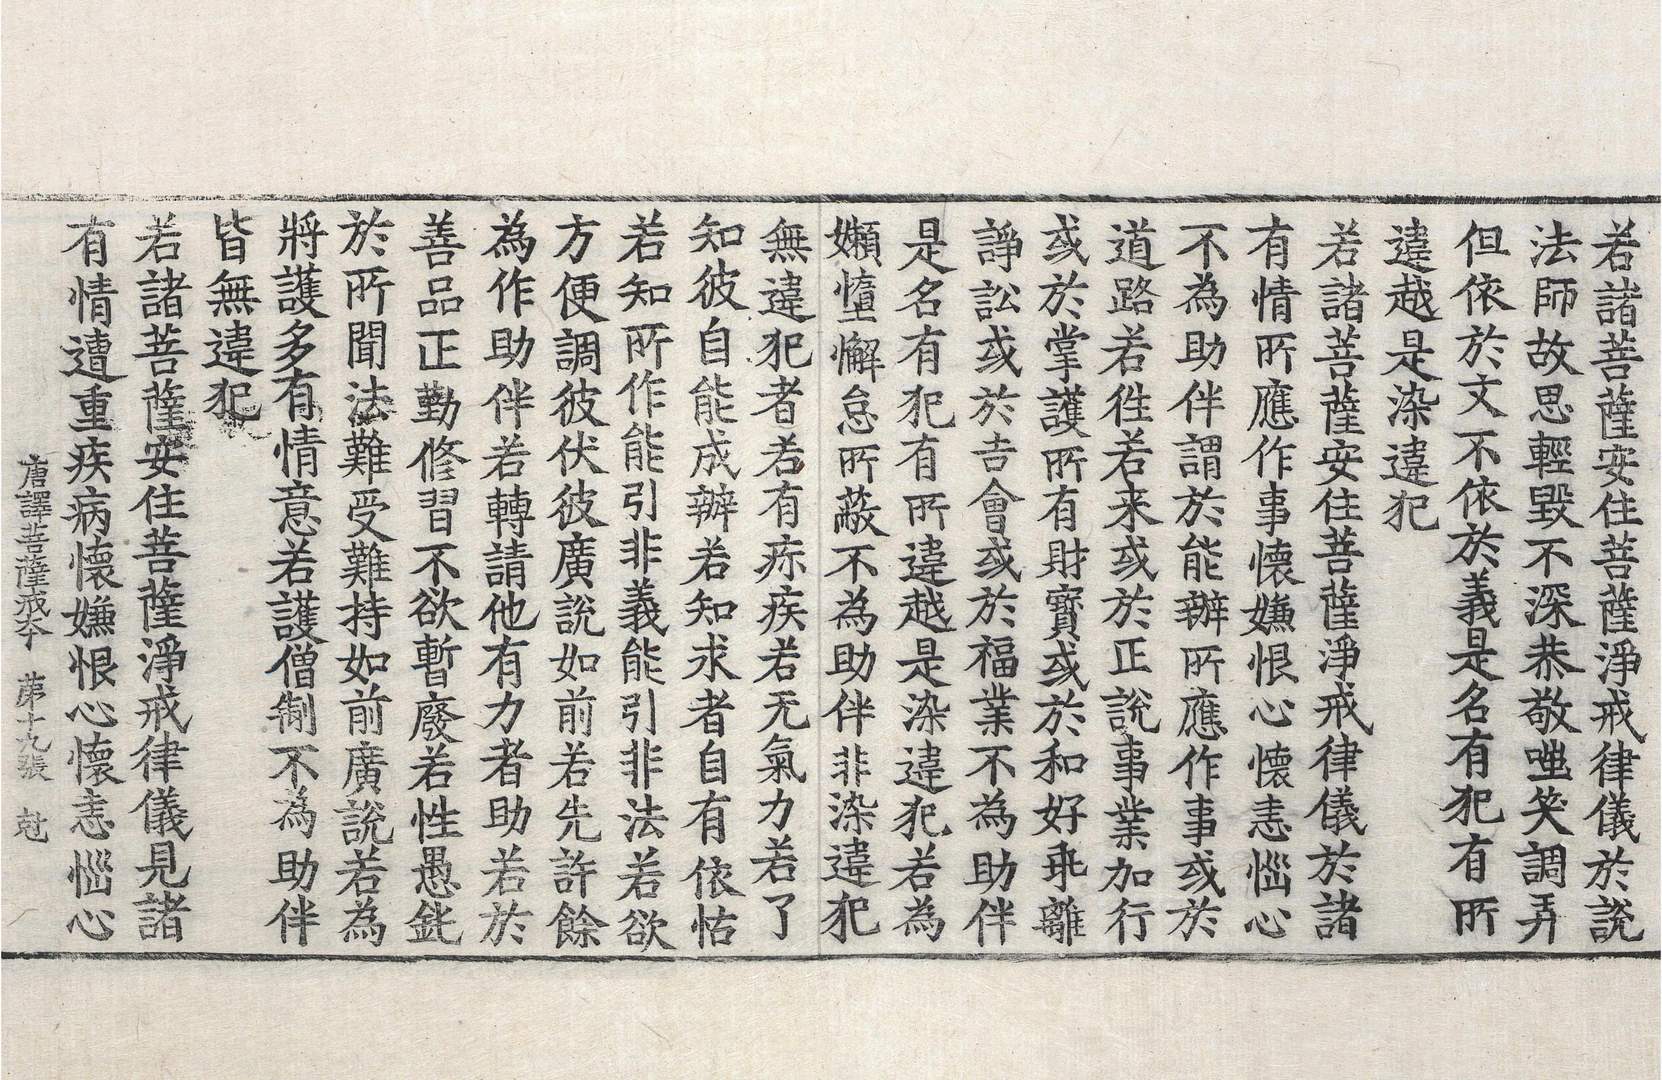 若諸菩薩安住菩薩淨戒律儀於說
法師故思輕毀不深恭敬嗤笑調弄
但依於文不依於義是名有犯有所
違越是染違犯
若諸菩薩安住菩薩淨戒律儀於諸
有情所應作事懷嫌恨心懷恚惱心
不為助伴謂於能辦所應作事或於
道路若徃若来或於正說事業加行
或於掌護所有財寳或於和好乖離
諍訟或於吉會或於福業不為助伴
是名有犯有所違越是染違犯若為
嬾憜懈怠所蔽不為助伴非染違犯
無違犯者若有疹疾若无氣力若了
知彼自能成辦若知求者自有依怙
若知所作能引非義能引非法若欲
方便調彼伏彼廣說如前若先許餘
為作助伴若轉請他有力者助若於
善品正勤修習不欲暫廢若性愚鈍
於所聞法難受難持如前廣說若為
將護多有情意若護僧制不為助伴
皆無違犯
若諸菩薩安住菩薩淨戒律儀見諸
有情遭重疾病懷嫌恨心懷恚惱心
唐譯菩薩戒夲 苐十九張 尅